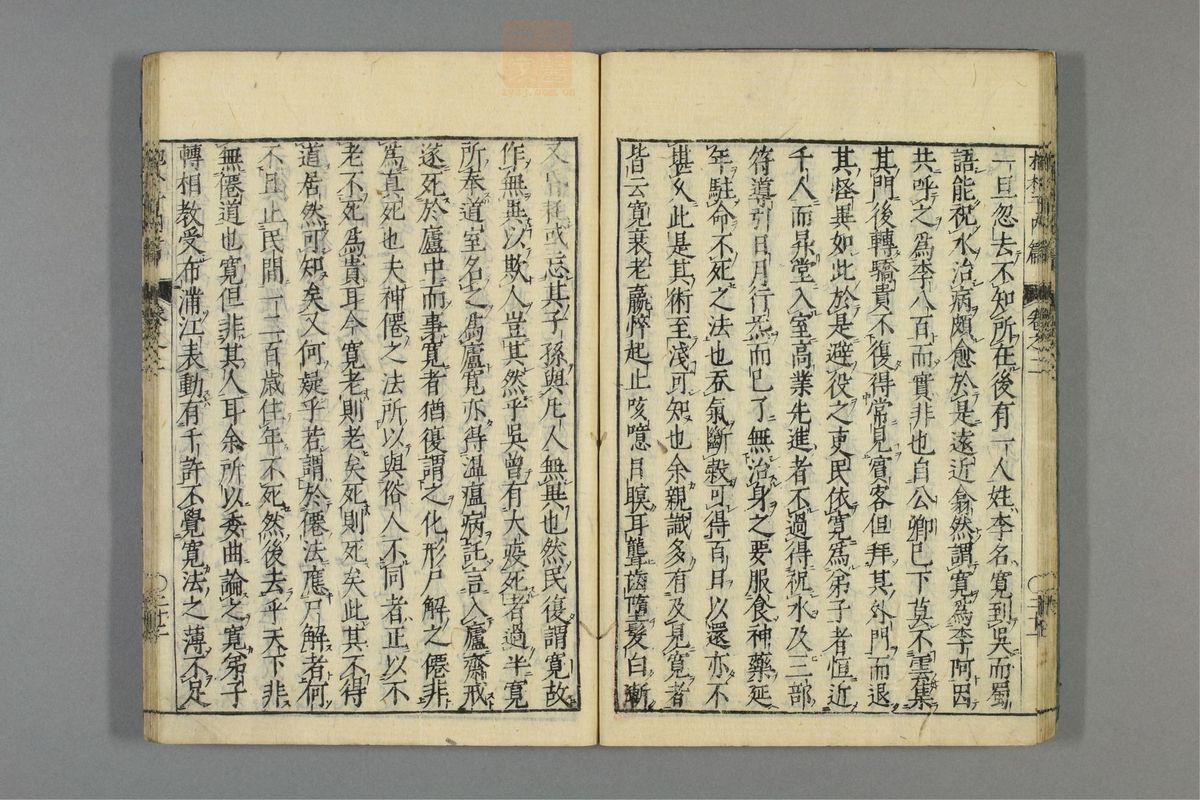 一旦忽去不知所在後有一人姓李名寛到吳而蜀
語能祝水治病頗愈於是遠近翕然謂寛爲李阿因
共呼之爲李八百而實非也自公卿已下莫不雲集
其門後轉驕貴不復得常見賓客但拜其外門而退
其怪異如此於是避役之吏民依寛爲弟子者恒近
千人而昇堂入室高業先進者不過得祝水及三部
符導引日月行炁而已了無治身之要服食神藥延
年駐命不死之法也吞氣斷穀可得百日以還亦不
堪久此是其術至浅可知也余親識多有及見寛者
皆云寛衰老羸悴起止咳噫目瞑耳聾齒墮髮白漸
又昏耗或忘其子孫與凡人無異也然民復謂寛故
作無異以欺人豈其然乎吳曾有大疫死者過半寛
所奉道室名之爲廬寛亦得溫瘟病託言入廬齋戒
遂死於廬中而事寛者猶復謂之化形尸解之僊非
爲真死也夫神僊之法所以與俗人不同者正以不
老不死爲貴耳今寛老則老矣死則死矣此其不得
道居然可知矣又何疑乎若謂於僊法應尸解者何
不且止民間一二百歲住年不死然後去乎天下非
無僊道也寛但非其人耳余所以委曲論之寛弟子
轉相教受布滿江表動有千許不覺寛法之薄不足